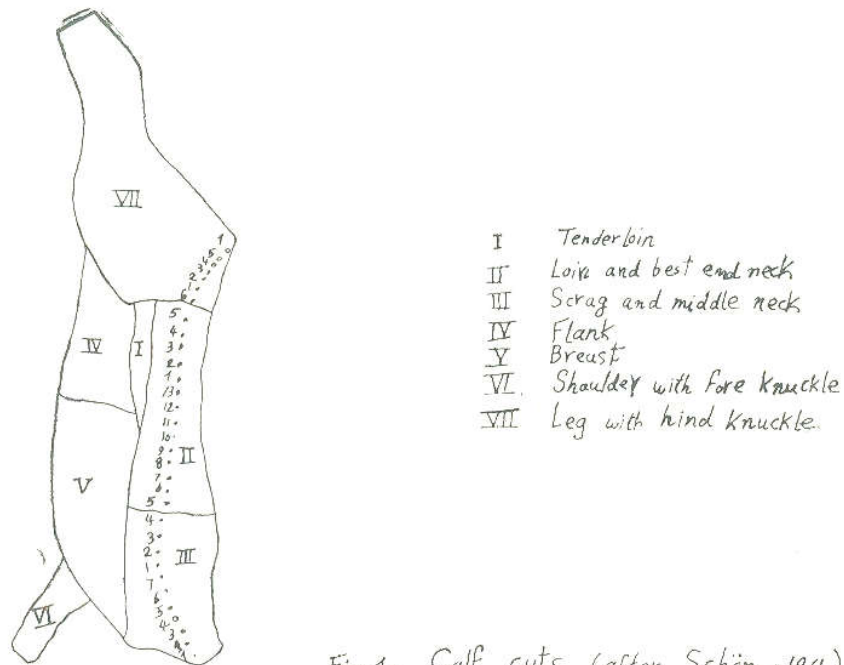 VII
1
5
4
3
2
1
6
5
4
3
2
1
13
12
11
10
9
8
7
6
5
4
3
2
1
7
6
5
4
3
IV
I
II
V
III
VI
I Tenderloin
II Loin and best end neck
III Scrag and middle neck
IV Flank
V Breast
VI Shoulder with fore knuckle
VII Leg with hind knuckle
Calf cuts (after Schön